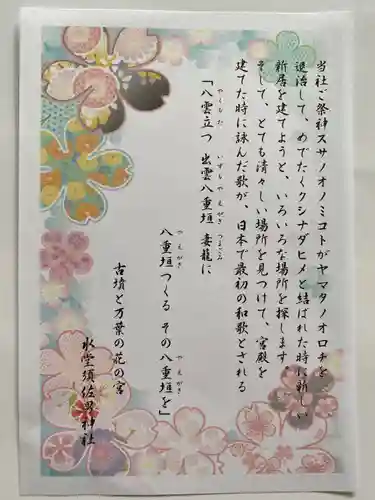 当社ご祭神スサノオノミコトがヤマタノオロチを
退治して、めでたくクシナダヒメと結ばれた時に新しい
新居を建てようと、いろいろな場所を探します。
そして、とても清々しい場所を見つけて、宮殿を
建てた時に詠んだ歌が、日本で最初の和歌とされる
「八雲立つ 出雲八重垣 妻籠に
八重垣つくる その八重垣を」
古墳と万葉の花の宮
水堂須佐男神社